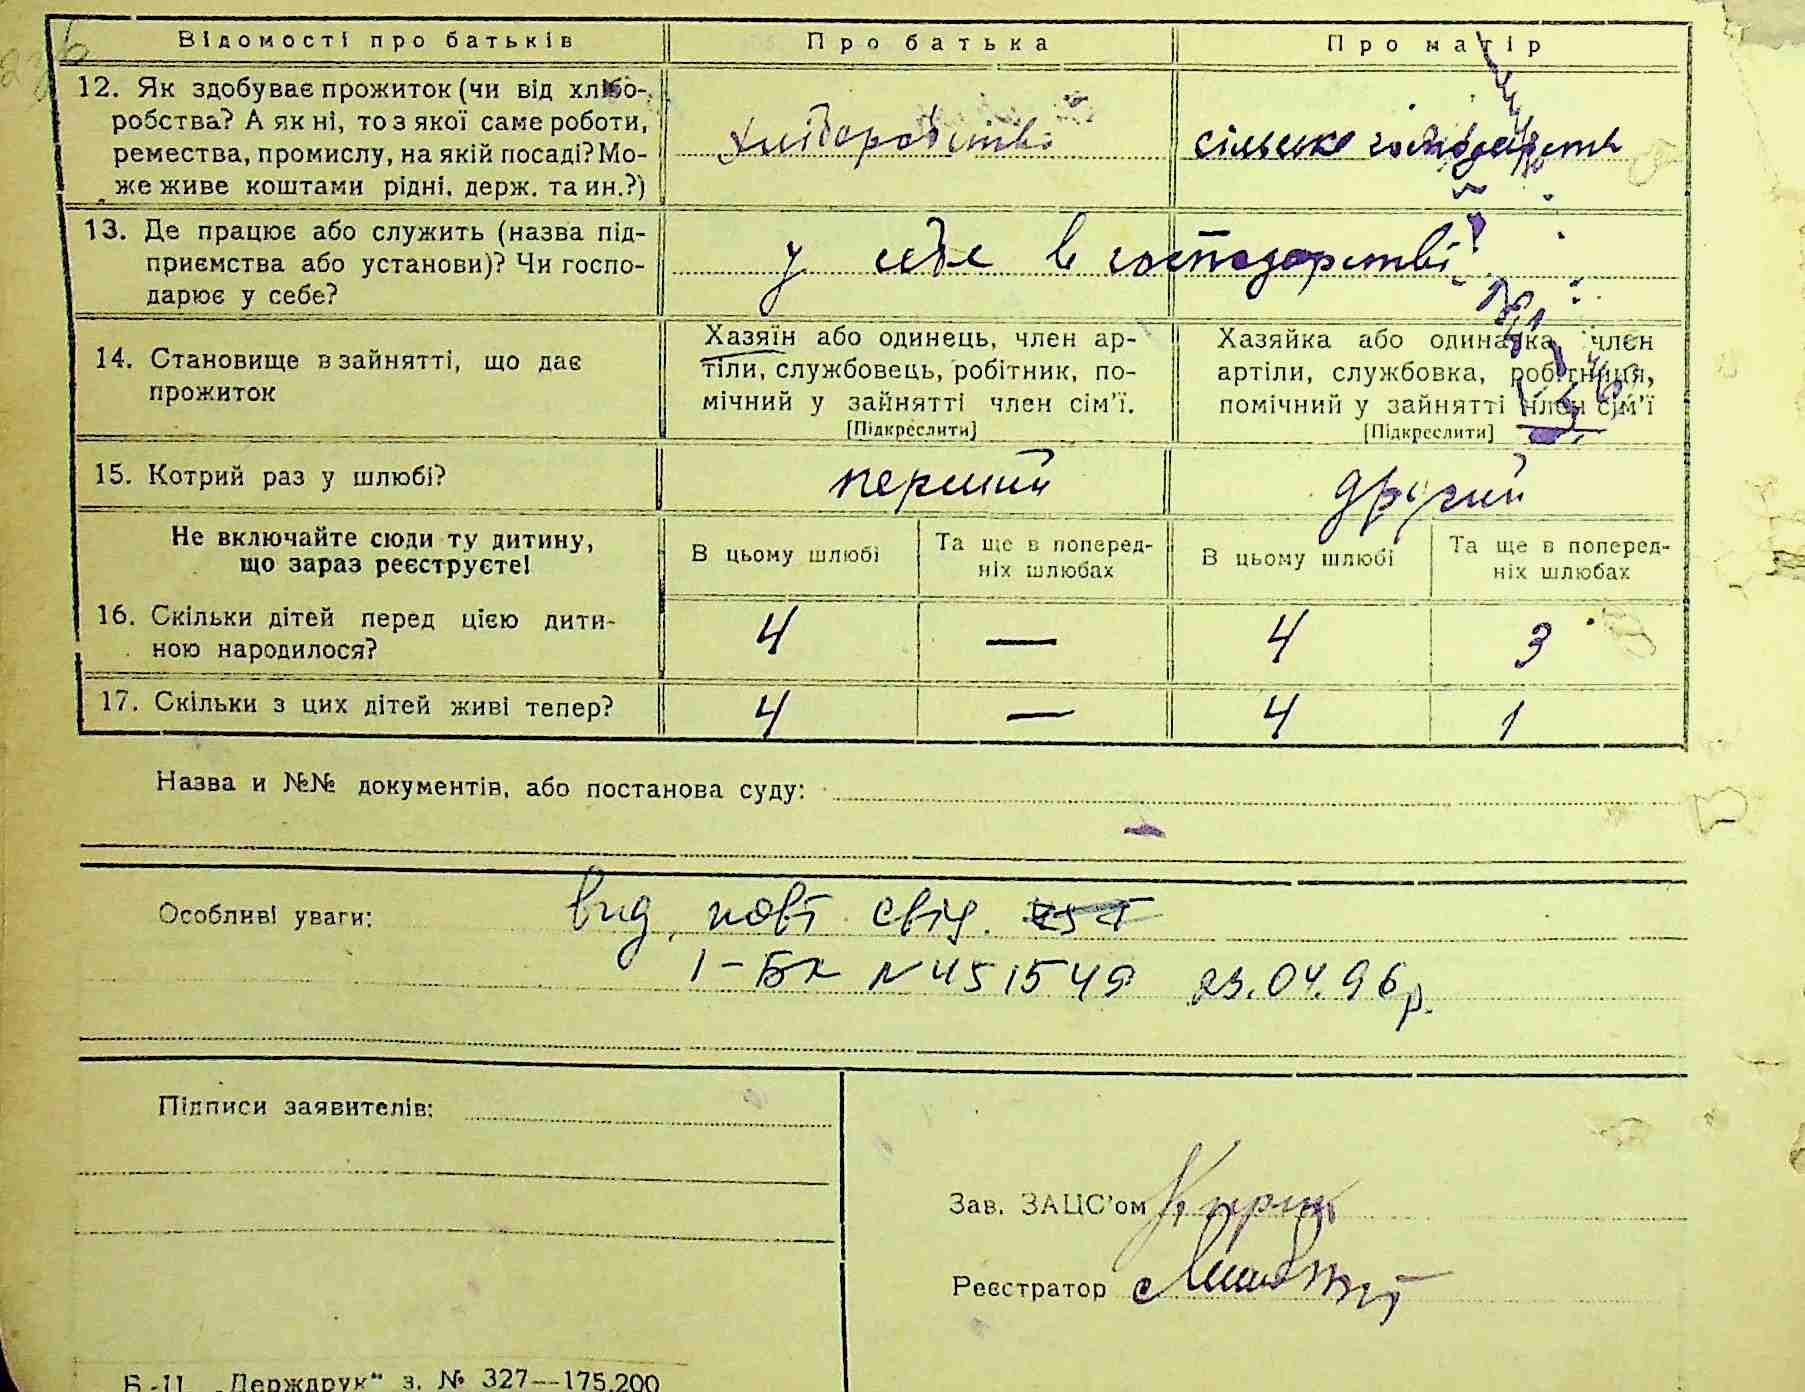 Відомості про батьків Про батька Про матір
12. Як здобуває прожиток (чи від хлібо-
робства? А як ні, то з якої саме роботи,
ремества, промислу, на якій посаді? Мо-
же живе коштами рідні, держ. та ин.?)
хліборобство сільське
13. Де працює або служить (назва під-
приємства або установи)? Чи госпо-
дарює у себе?
у себе в господарстві
14. Становище в зайнятті, що дає
прожиток
Хазяїн або одинець, член ар-
тіли, службовець, робітник, по-
мічний у зайнятті член сім'ї.
[Підкреслити]
Хазяйка або одиначка, член
артіли, службовка, робітниця,
помічний у зайнятті член сім'ї
[Підкреслити]
15. Котрий раз у шлюбі? перший другий
Не включайте сюди ту дитину,
що зараз реєструєте!
В цьому шлюбі
Та ще в поперед-
ніх шлюбах
В цьому шлюбі
Та ще в поперед-
ніх шлюбах
16. Скільки дітей перед цією дити-
ною народилося?
4 — 4 3
17. Скільки з цих дітей живі тепер? 4 — 4 1
Назва и №№ документів, або постанова суду:
Особливі уваги: вид. повт. свід.
І-БК N 451549 23.04.96р.
Підписи заявителів:
Зав. ЗАЦС'ом
Реєстратор
Б.-Ц. „Держдрук“ з. № 327—175.200